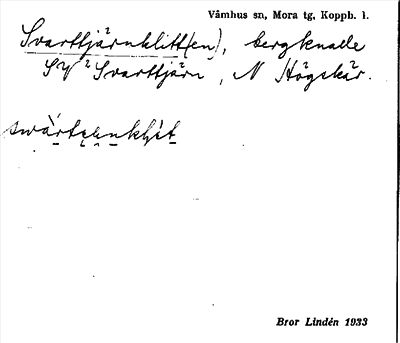 Våmhus sn, Mora tg, Koppb. l.
Svarttjärnklitt(en), bergknalle
SV Svarttjärn, N Högskär.
Bror Lindén 1933